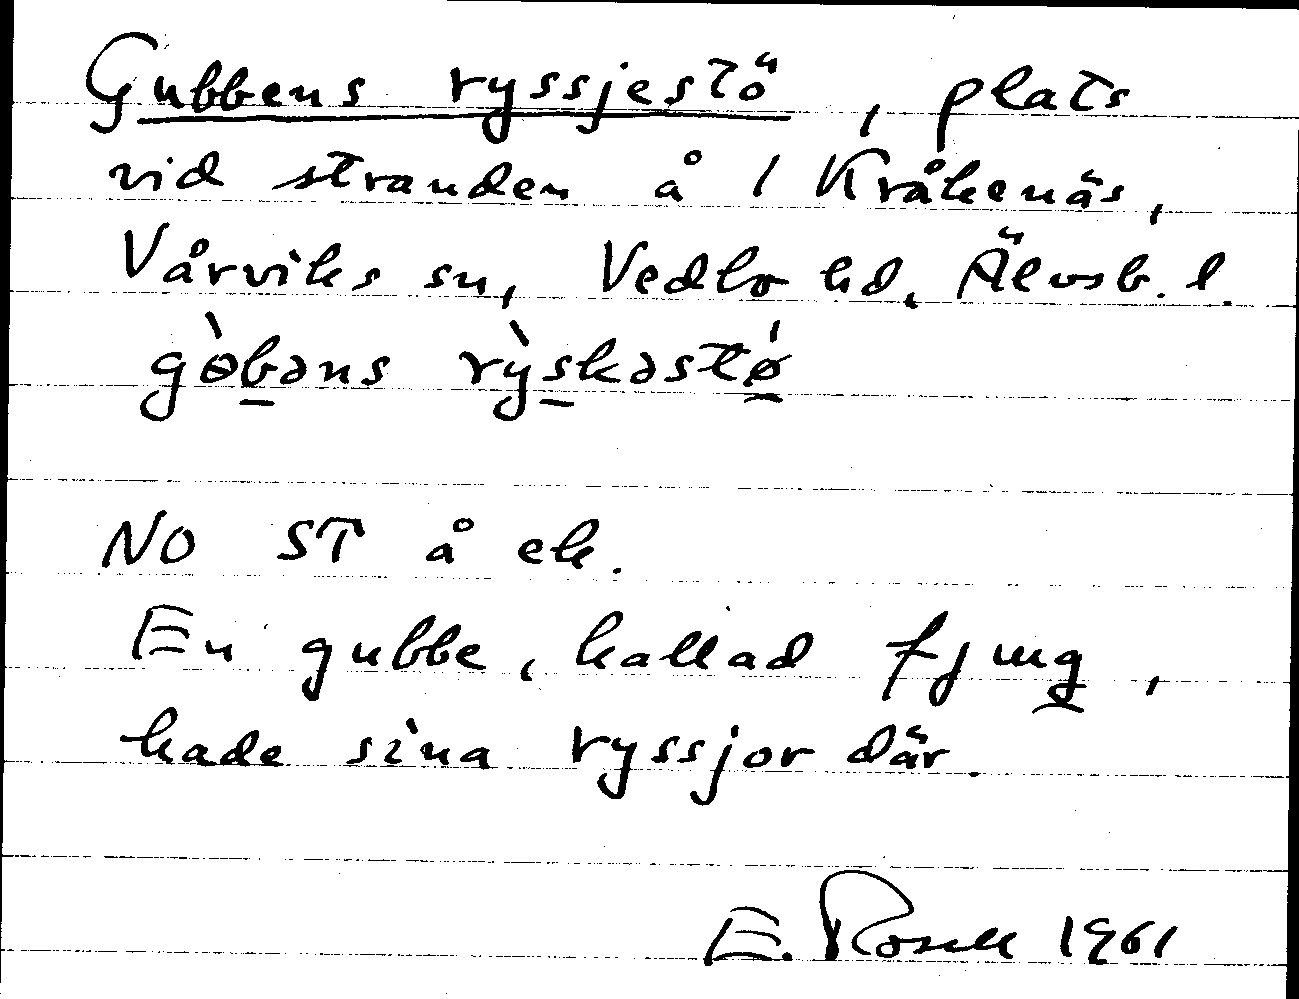 Gubbens ryssjestö, plats
vid stranden å 1 Kråkenäs,
Vårviks sn, Vedbo hd. Älvsb. l.
gò̀bəns rỳskəstǿ
NO ST å ek.
En gubbe, kallad fjung,
hade sina ryssjor där.
E. Rosell 1961